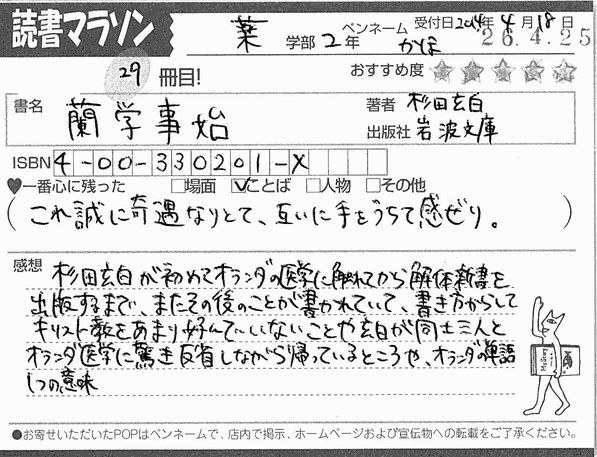 読書マラソン
薬 学部 2年 ペンネーム かほ 受付日2014年4月18日
26.4.25
29 冊目! おすすめ度 ★★★★★
書名 蘭学事始 著者 杉田玄白
出版社 岩波文庫
ISBN 4-00-330201-X
♥一番心に残った □場面 ☑ことば □人物 □その他
(これ誠に奇遇なりとて、互いに手をうちて感ぜり。)
感想 杉田玄白が初めてオランダの医学に触れてから解体新書を
出版するまで、またその後のことが書かれていて、書き方からして
キリスト教をあまり好んでいないことや玄白が同士三人と
オランダ医学に驚き反省しながら帰っているところや、オランダの単語
1つの意味
●お寄せいただいたPOPはペンネームで、店内で掲示、ホームページおよび宣伝物への転載をご了承ください。